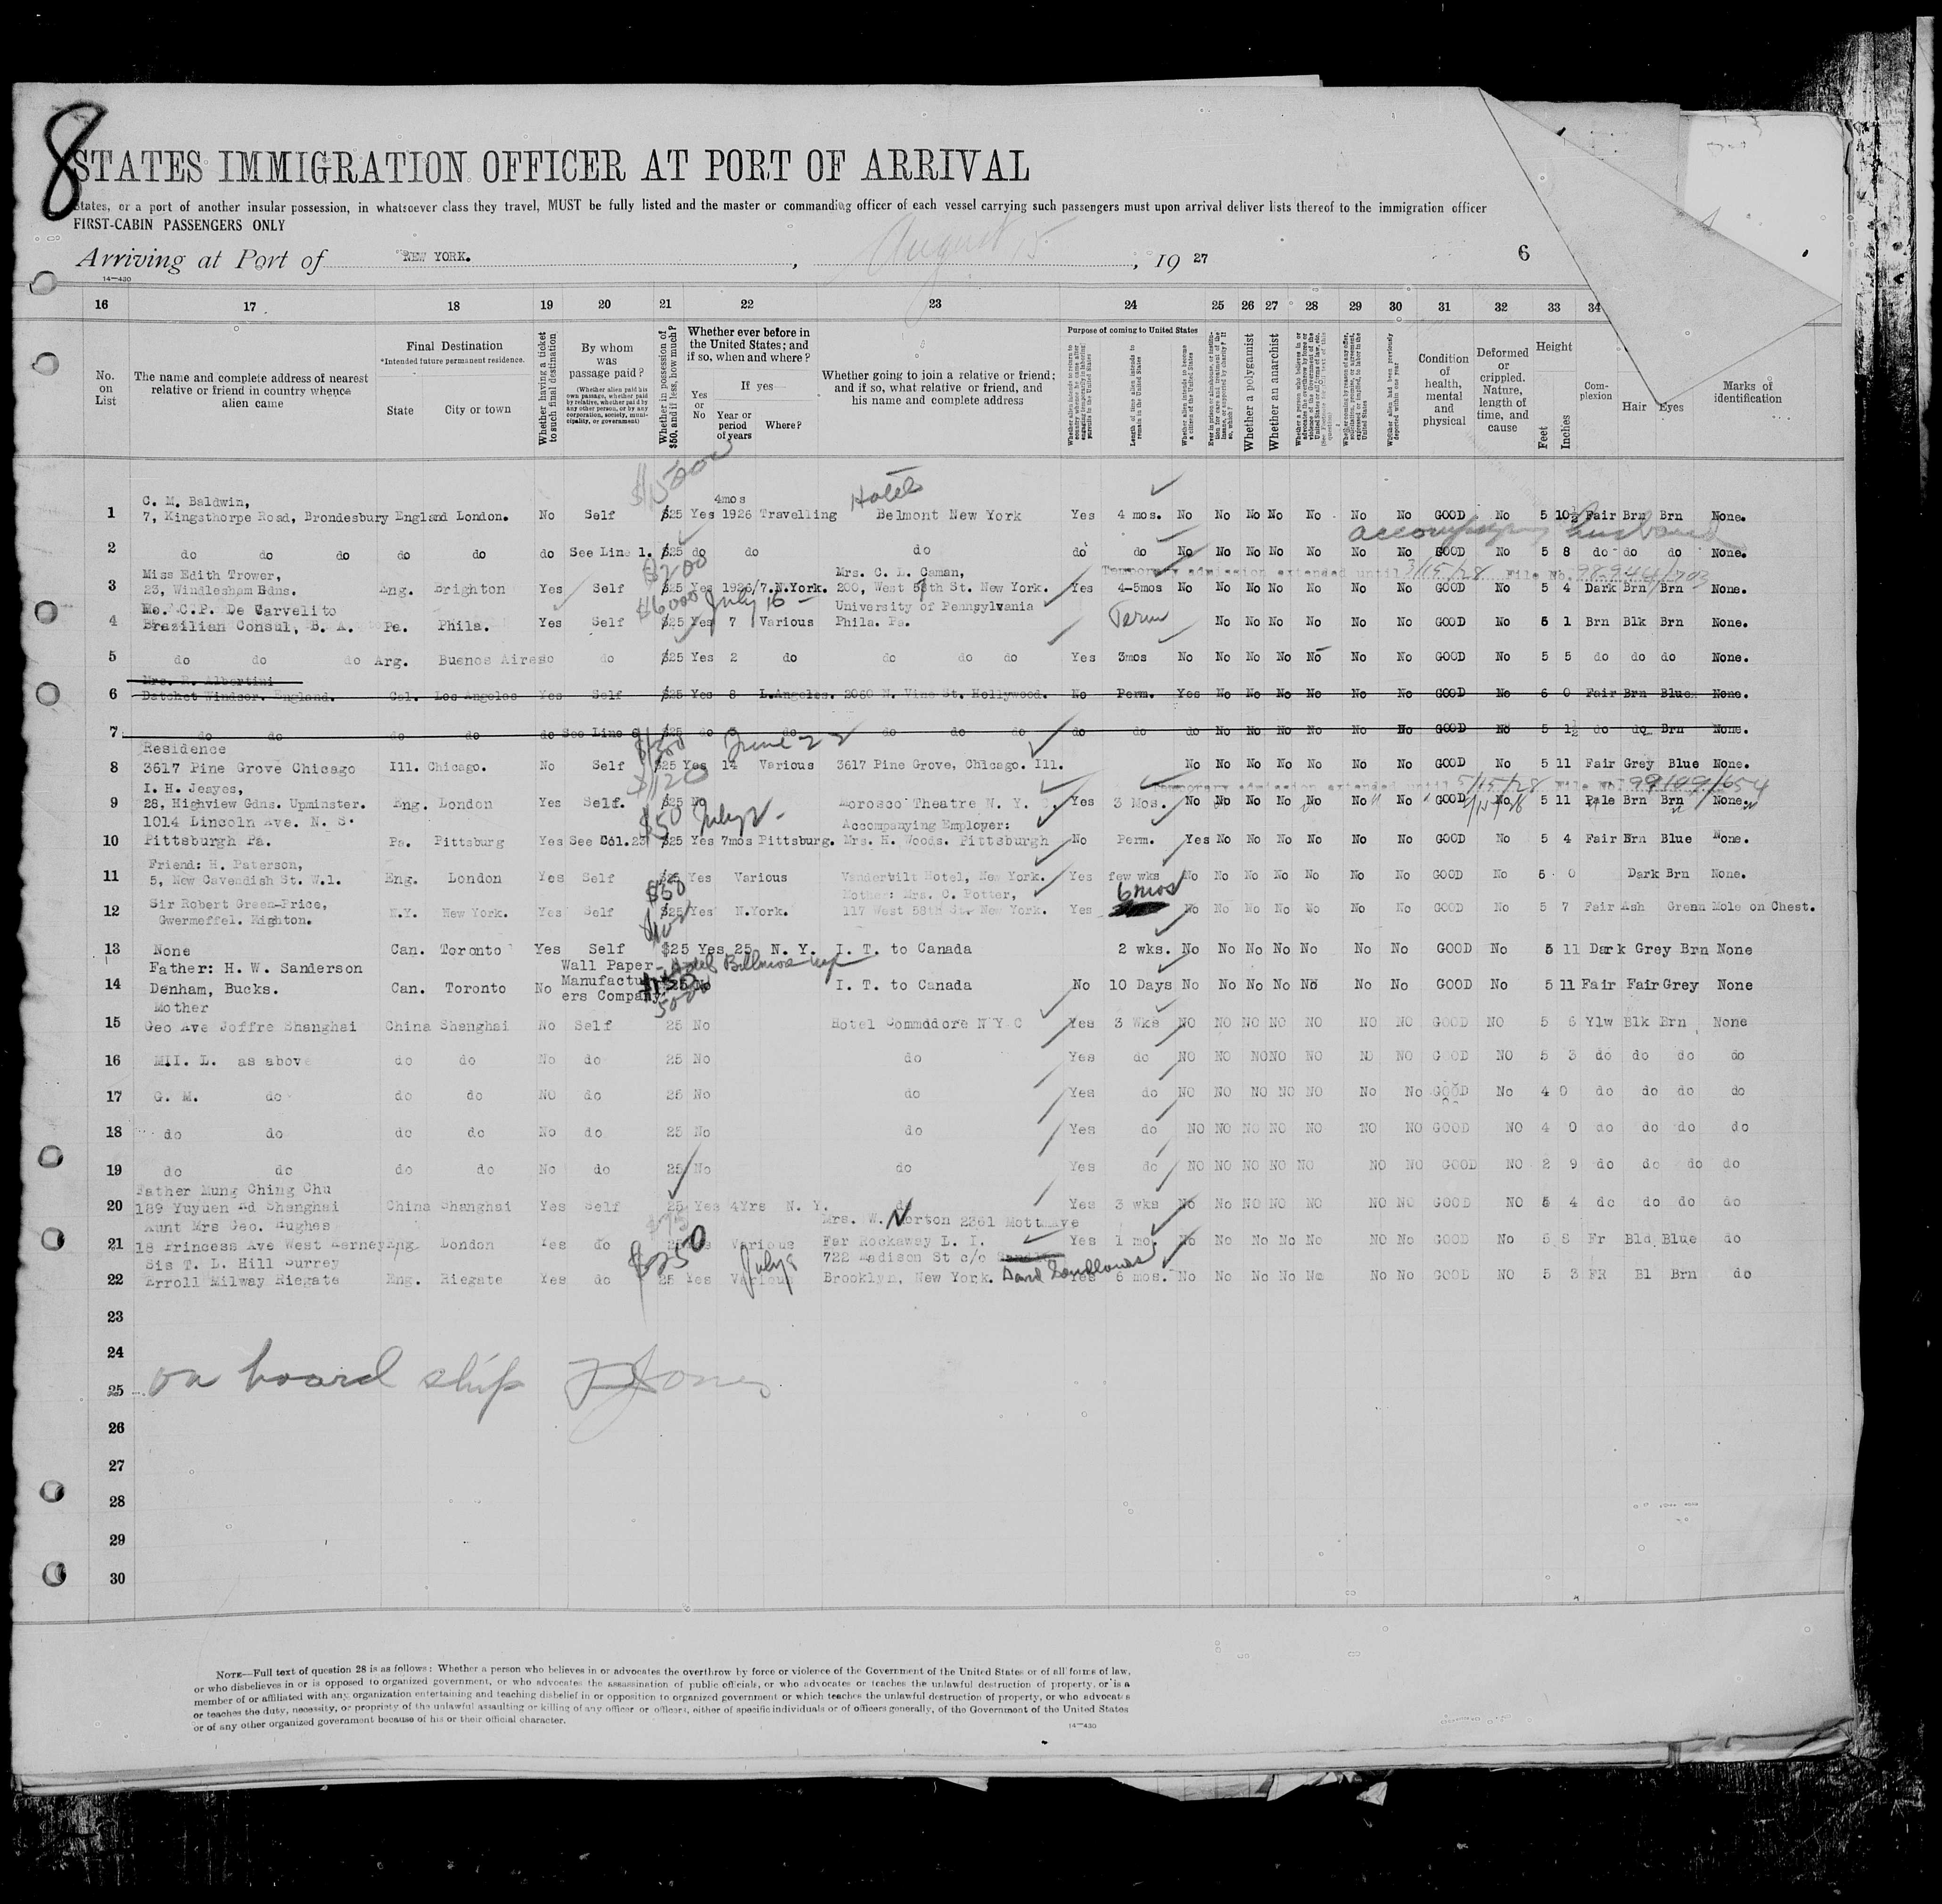 8
STATES IMMIGRATION OFFICER AT PORT OF ARRIVAL
States, or a port of another insular possession, in whatsoever class they travel, MUST be fully listed and the master or commanding officer of each vessel carrying such passengers must upon arrival deliver lists thereof to the immigration officer
FIRST-CABIN PASSENGERS ONLY
Arriving at Port of NEW YORK. , August 15 , 19 27 6
14—430
16 17 18 19 20 21 22 23 24 25 26 27 28 29 30 31 32 33 34
No. on List
The name and complete address of nearest relative or friend in country whence alien came
Final Destination
*Intended future permanent residence.
State City or town
Whether having a ticket to such final destination
By whom was passage paid?
(Whether alien paid his own passage, whether paid by relative, whether paid by any other person, or by any corporation, society, municipality, or government)
Whether in possession of $50, and if less, how much?
Whether ever before in the United States; and if so, when and where?
Yes or No
If yes—
Year or period of years Where?
Whether going to join a relative or friend; and if so, what relative or friend, and his name and complete address
Purpose of coming to United States
Length of time alien intends to remain in the United States
Whether alien intends to become a citizen of the United States
Whether a polygamist
Whether an anarchist
Condition of health, mental and physical
Deformed or crippled. Nature, length of time, and cause
Height
Feet Inches
Com-plexion
Hair Eyes
Marks of identification
$1500
4mos Hotel
C. M. Baldwin,
1 7, Kingsthorpe Road, Brondesbury England London. No Self $25 Yes 1926 Travelling Belmont New York Yes 4 mos. No No No No No No No GOOD No 5 10½ Fair Brn Brn None.
accompanying husband
2 do do do do do do See Line 1. $25 do do do do do No No No No No No No GOOD No 5 8 do do do None.
$200
Miss Edith Trower, Mrs. C. L. Caman, Temporary admission extended until 3/15/28 File No. 98944/703
3 23, Windlesham Gdns. Eng. Brighton Yes Self $25 Yes 1926/7.N.York. 200, West 58th St. New York. Yes 4-5mos No No No No No No No GOOD No 5 4 Dark Brn Brn None.
$6000 July 16
Me. C.P. De Carvelito University of Pennsylvania
4 Brazilian Consul, B. A. Pa. Phila. Yes Self $25 Yes 7 Various Phila. Pa. No No No No No No GOOD No 5 1 Brn Blk Brn None.
5 do do do Arg. Buenos Aires do do $25 Yes 2 do do do do Yes 3mos No No No No No No No GOOD No 5 5 do do do None.
Mrs. R. Albertini
6 Datchet Windsor. England. Cal. Los Angeles Yes Self $25 Yes 8 L.Angeles. 2060 N. Vine St. Hollywood. No Perm. Yes No No No No No No GOOD No 6 0 Fair Brn Blue None.
7 do do do do do See Line 6 $25 do 3 do do do do do do do No No No No No No GOOD No 5 1½ do do Brn None.
June 22
Residence
8 3617 Pine Grove Chicago Ill. Chicago. No Self $25 Yes 14 Various 3617 Pine Grove, Chicago. Ill. No No No No No No No GOOD No 5 11 Fair Grey Blue None.
$120
I. H. Jeayes, Temporary admission extended until 5/15/28 File No. 99109/654
9 28, Highview Gdns. Upminster. Eng. London Yes Self. $25 No Morosco Theatre N. Y. C. Yes 3 Mos. No No No No No No No GOOD No 5 11 Pale Brn Brn None.
$50 July 2
1014 Lincoln Ave. N. S. Accompanying Employer:
10 Pittsburgh Pa. Pa. Pittsburg Yes See Col.23 $25 Yes 7mos Pittsburg. Mrs. H. Woods. Pittsburgh No Perm. Yes No No No No No No GOOD No 5 4 Fair Brn Blue None.
Friend: H. Paterson,
11 5, New Cavendish St. W.1. Eng. London Yes Self $25 Yes Various Vanderbilt Hotel, New York. Yes few wks No No No No No No No GOOD No 5 0 Dark Brn None.
$50 6 mos
Sir Robert Green-Price, Mother: Mrs. C. Potter,
12 Gwermeffel. Kighton. N.Y. New York. Yes Self $25 Yes N.York. 117 West 58th St. New York. Yes No No No No No No No GOOD No 5 7 Fair Ash Green Mole on Chest.
$100
13 None Can. Toronto Yes Self $25 Yes 25 N. Y. I. T. to Canada 2 wks. No No No No No No No GOOD No 5 11 Dark Grey Brn None
Father: H. W. Sanderson Wall Paper Hotel Biltmore
14 Denham, Bucks. Can. Toronto No Manufactur- ers Company. $25 No I. T. to Canada No 10 Days No No No No No No No GOOD No 5 11 Fair Fair Grey None
5000
Mother
15 Geo Ave Joffre Shanghai China Shanghai No Self 25 No Hotel Commodore N Y C Yes 3 Wks NO NO NO NO NO NO NO GOOD NO 5 6 Ylw Blk Brn None
16 MII. L. as above do do No do 25 No do Yes do NO NO NO NO NO NO NO GOOD NO 5 3 do do do do
17 G. M. do do do NO do 25 No do Yes do NO NO NO NO NO No No GOOD No 4 0 do do do do
18 do do do do No do 25 No do Yes do NO NO NO NO NO NO NO GOOD NO 4 0 do do do do
19 do do do do No do 25 No do Yes do NO NO NO NO NO NO NO GOOD NO 2 9 do do do do
Father Mung Ching Chu
20 189 Yuyuen Rd Shanghai China Shanghai Yes Self 25 Yes 4Yrs N. Y. do Yes 3 wks No No NO NO NO NO NO GOOD NO 5 4 do do do do
$75
Aunt Mrs Geo. Hughes Mrs. W. Norton 2361 Mott Ave
21 18 Princess Ave West Eng. London Yes do 25 Yes Various Far Rockaway L. I. Yes 1 mo. No No No No No No No GOOD No 5 8 Fr Bld Blue do
$250 July
Sis T. L. Hill Surrey 722 Madison St c/o
22 Erroll Milway Riegate Eng. Riegate Yes do 25 Yes Various Brooklyn, New York. Yes 6 mos. No No No No No No No GOOD No 5 3 FR Bl Brn do
23
24
25 on board ship Jones
26
27
28
29
30
NOTE—Full text of question 28 is as follows: Whether a person who believes in or advocates the overthrow by force or violence of the Government of the United States or of all forms of law,
or who disbelieves in or is opposed to organized government, or who advocates the assassination of public officials, or who advocates or teaches the unlawful destruction of property, or is a
member of or affiliated with any organization entertaining and teaching disbelief in or opposition to organized government or which teaches the unlawful destruction of property, or who advocates
or teaches the duty, necessity, or propriety of the unlawful assaulting or killing of any officer or officers, either of specific individuals or of officers generally, of the Government of the United States
or of any other organized government because of his or their official character.
14—430